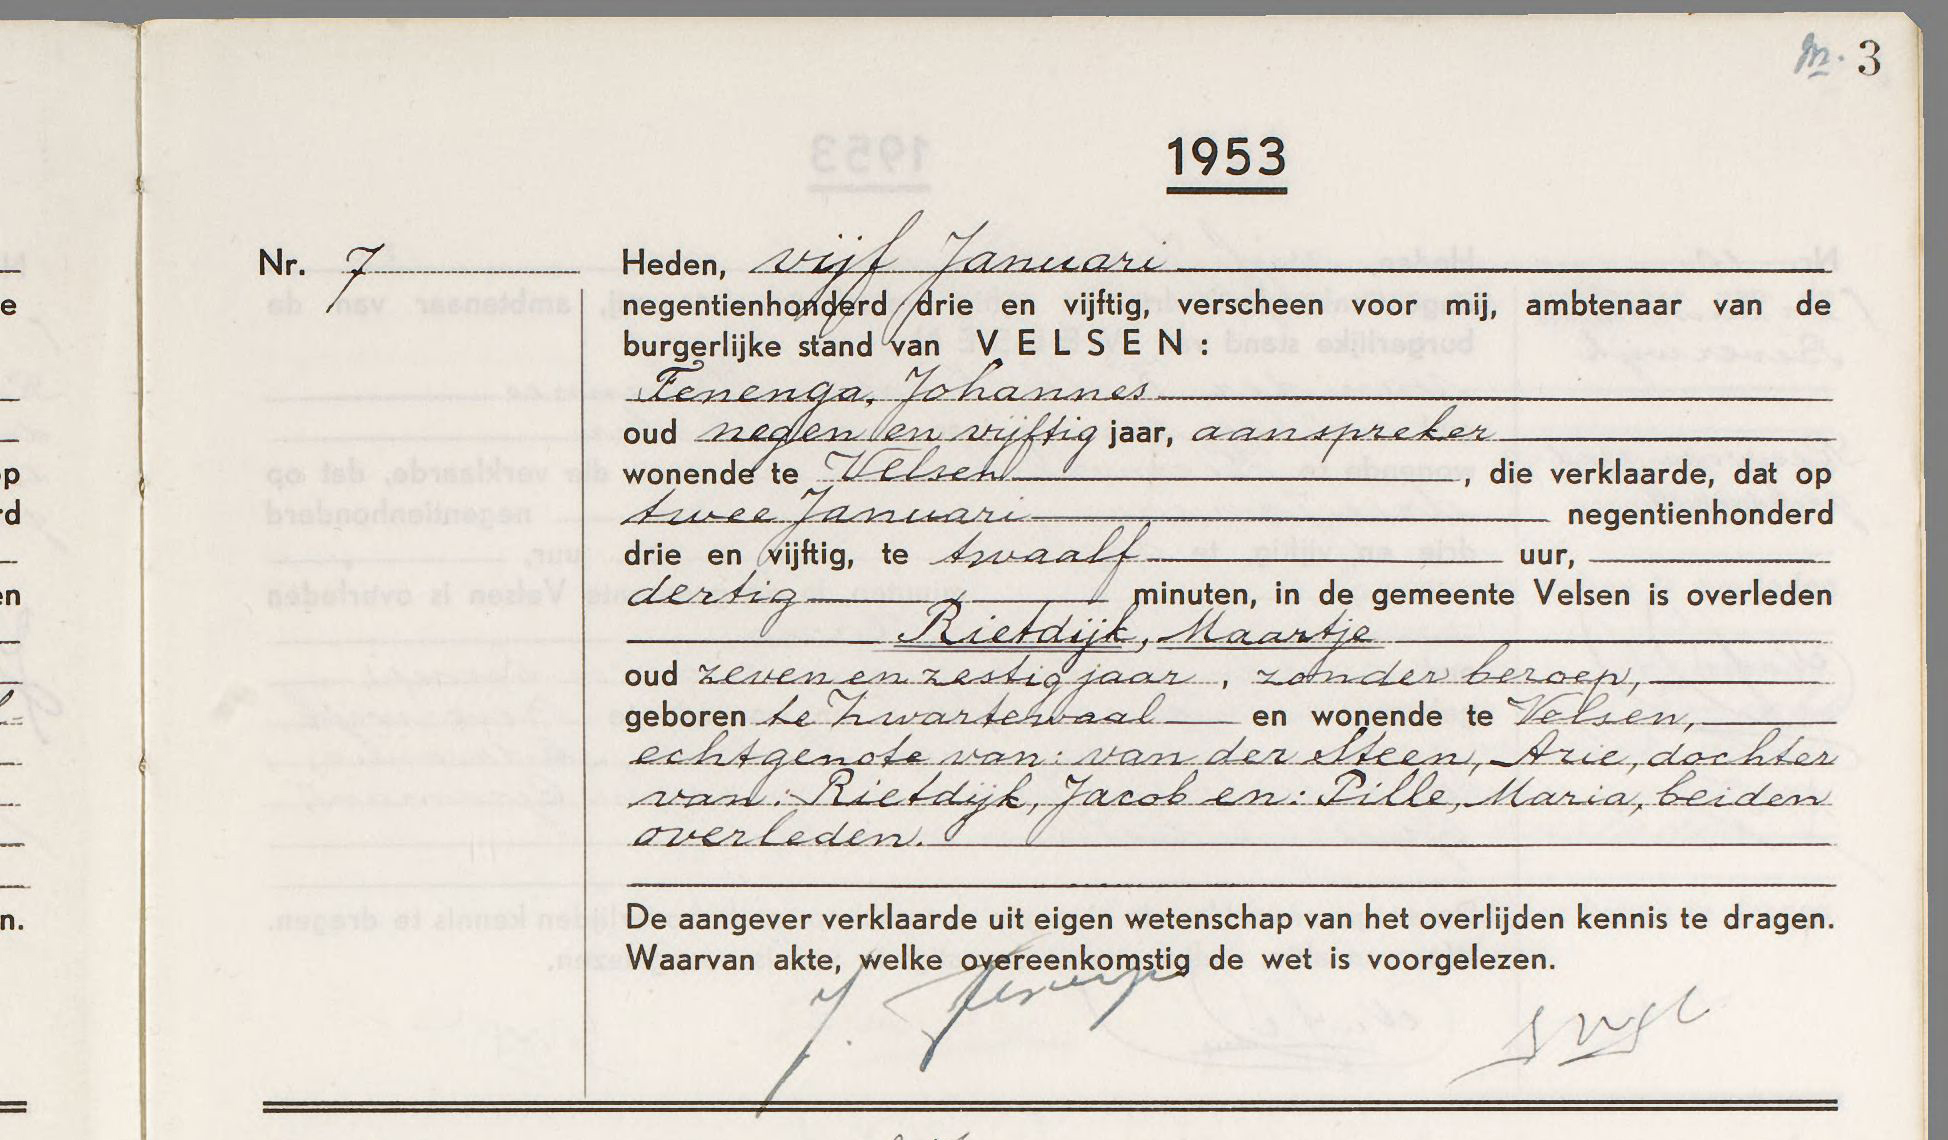 m. 3
1953
Nr. 7
Heden, vijf Januari
negentienhonderd drie en vijftig, verscheen voor mij, ambtenaar van de
burgerlijke stand van VELSEN:
Fenenga, Johannes
oud negen en vijftig jaar, aanspreker
wonende te Velsen, die verklaarde, dat op
twee Januari negentienhonderd
drie en vijftig, te twaalf uur,
dertig minuten, in de gemeente Velsen is overleden
Rietdijk, Maartje
oud zeven en zestig jaar, zonder beroep,
geboren te Zwartewaal en wonende te Velsen,
echtgenote van: van der Steen, Arie, dochter
van: Rietdijk, Jacob en: Pille, Maria, beiden
overleden.
De aangever verklaarde uit eigen wetenschap van het overlijden kennis te dragen.
Waarvan akte, welke overeenkomstig de wet is voorgelezen.